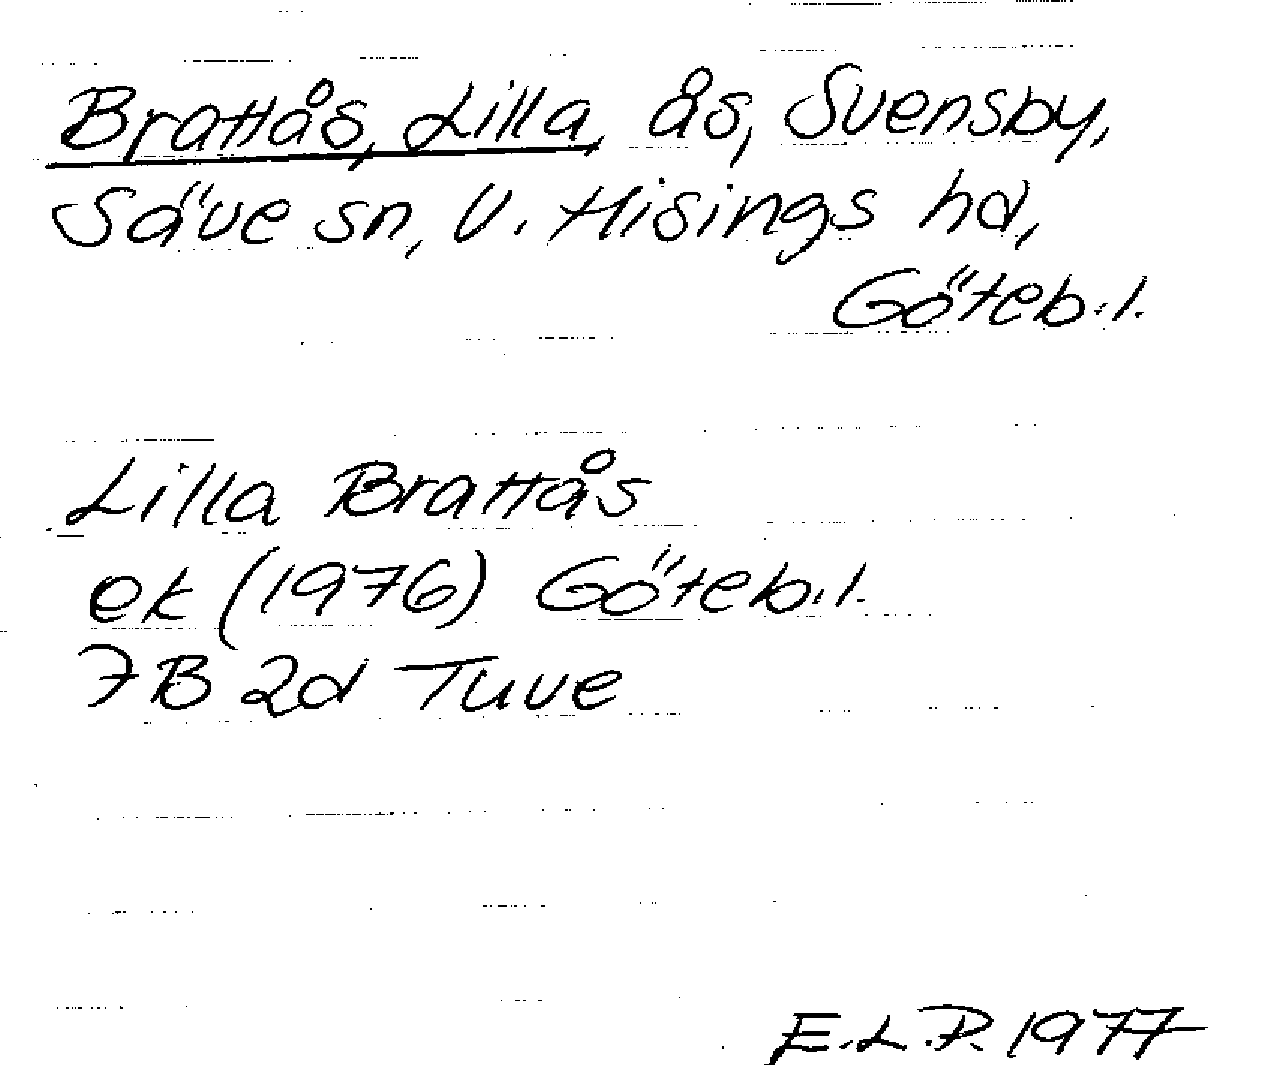 Brattås, Lilla, ås, Svensby,
Säve sn, V. Hisings hd,
Göteb.l.
Lilla Brattås
ek (1976) Göteb.l.
7B 2d Tuve
E.L.P. 1977